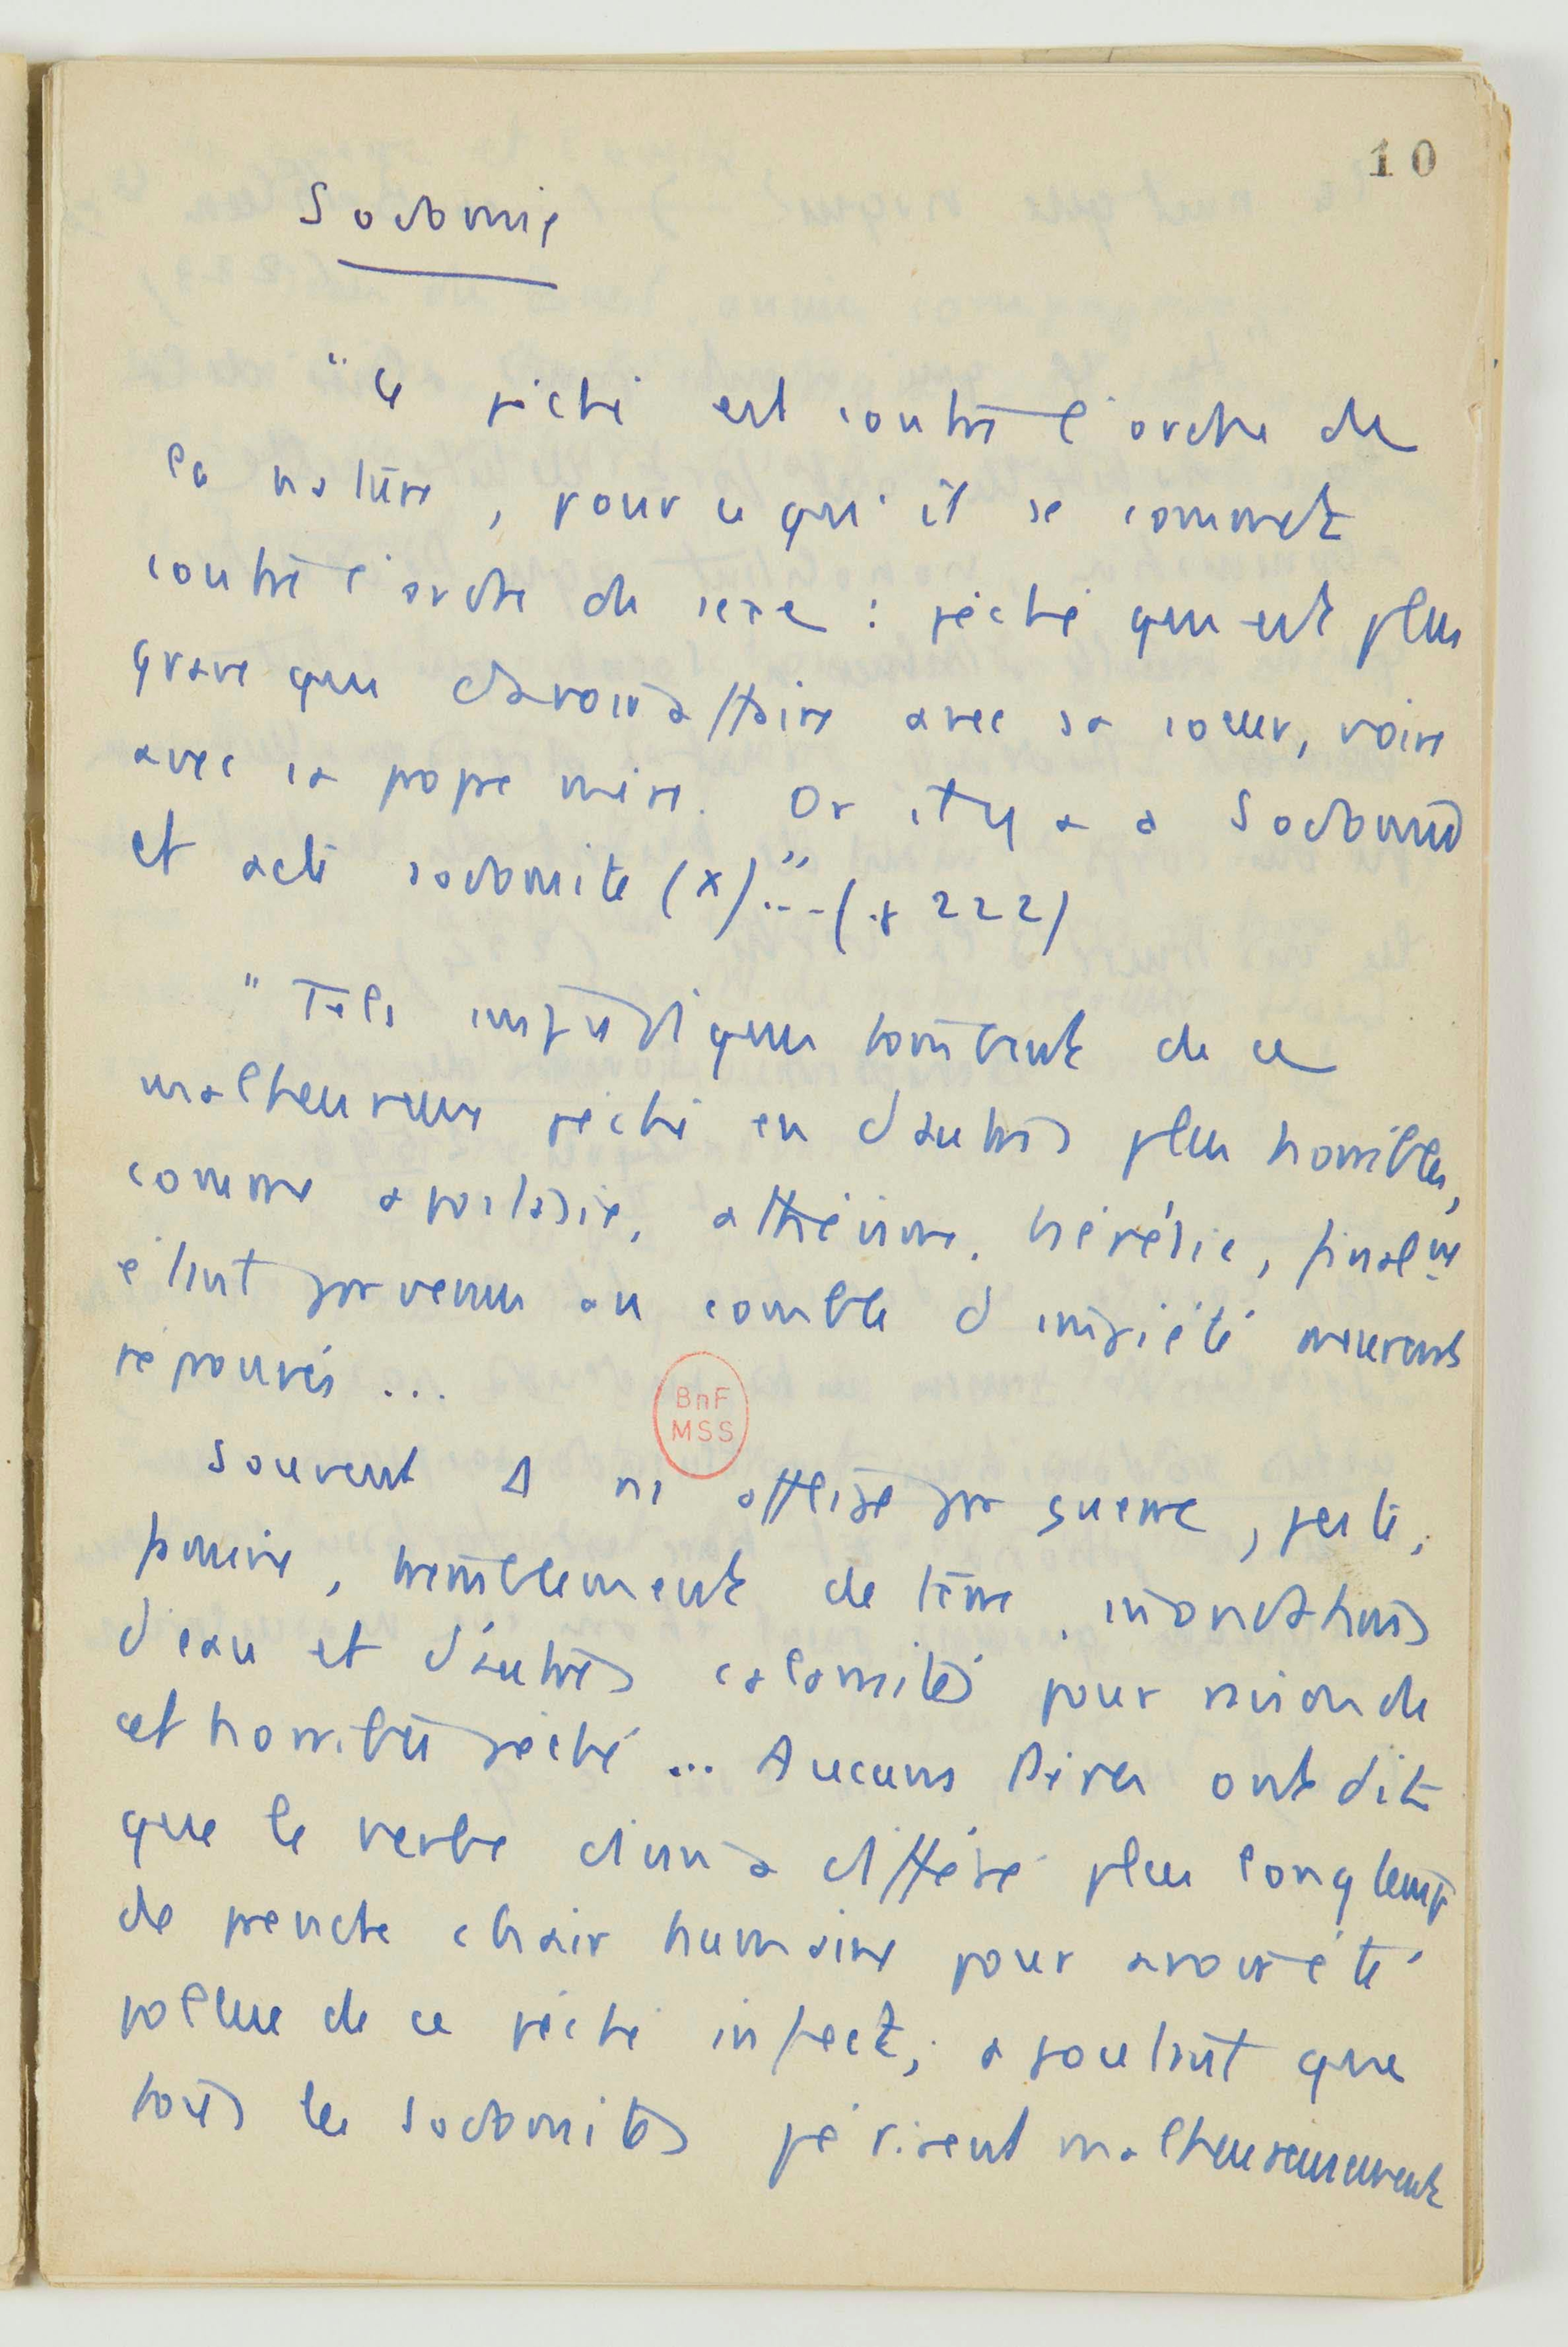 10
Sodomie
" Ce péché est contre l'ordre de
la nature, pour ce qu'il se commet
contre l'ordre du sexe : péché qui est plus
grave que d'avoir affaire avec sa soeur, voire
avec sa propre mère. Or il y a Sodomie
et acte sodomite (x)"...(p 222)
" Tels impudiques tombent de ce
malheureux péché en d'autres plus horribles,
comme apostasie, athéisme, hérésie, finalmt
étant parvenus au comble d'impiété meurent
réprouvés ...
Souvent D ns afflige par guerre, peste,
famine, tremblement de terre, inondations
d'eau et d'autres calamités pour raison de
cet horrible péché ... Aucuns Pères ont dit
que le verbe divin a différé plus longtemps
de prendre chair humaine pour avoir été
pollue de ce péché infect, ajoutant que
tous les sodomites périrent malheureusement
BnF
MSS